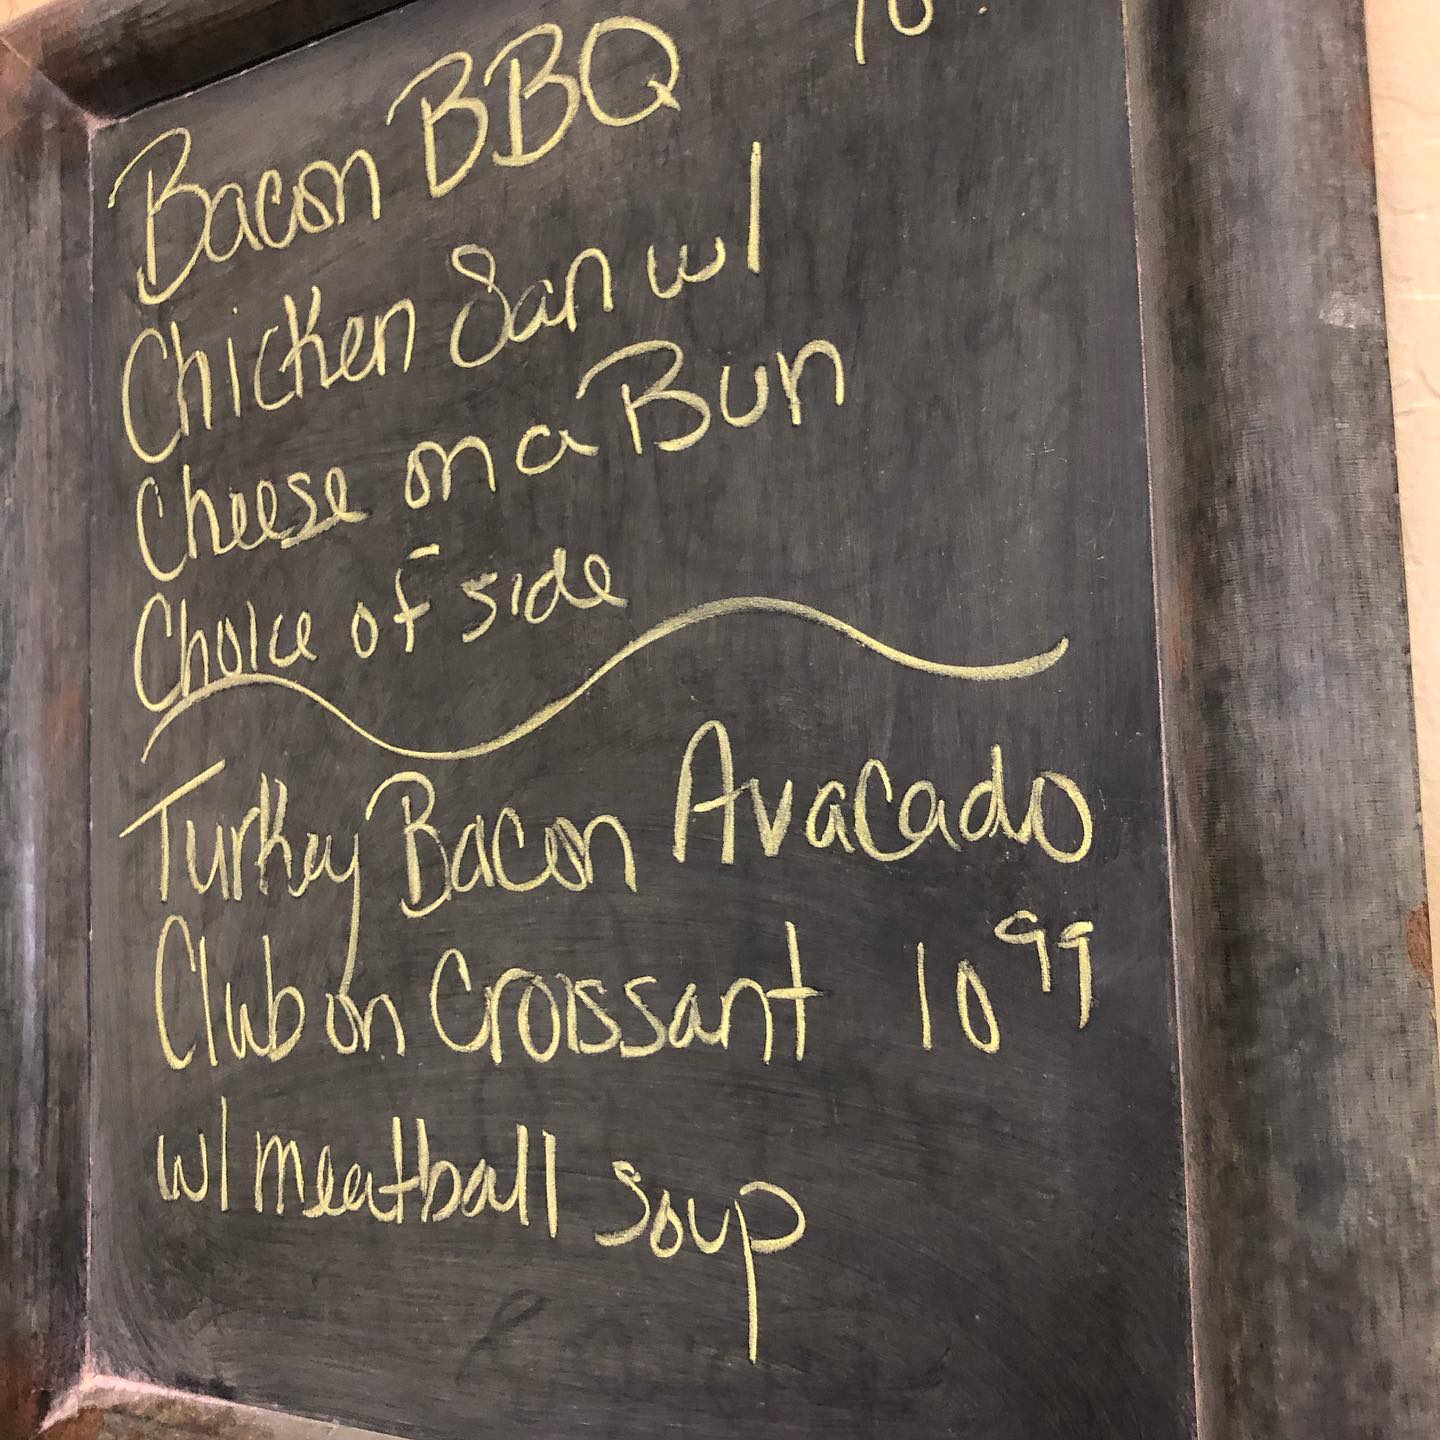 Bacon BBQ
Chicken San w/
Cheese on a Bun
Choice of side
Turkey Bacon Avacado
Club on Croissant 10 99
w/ meatball soup